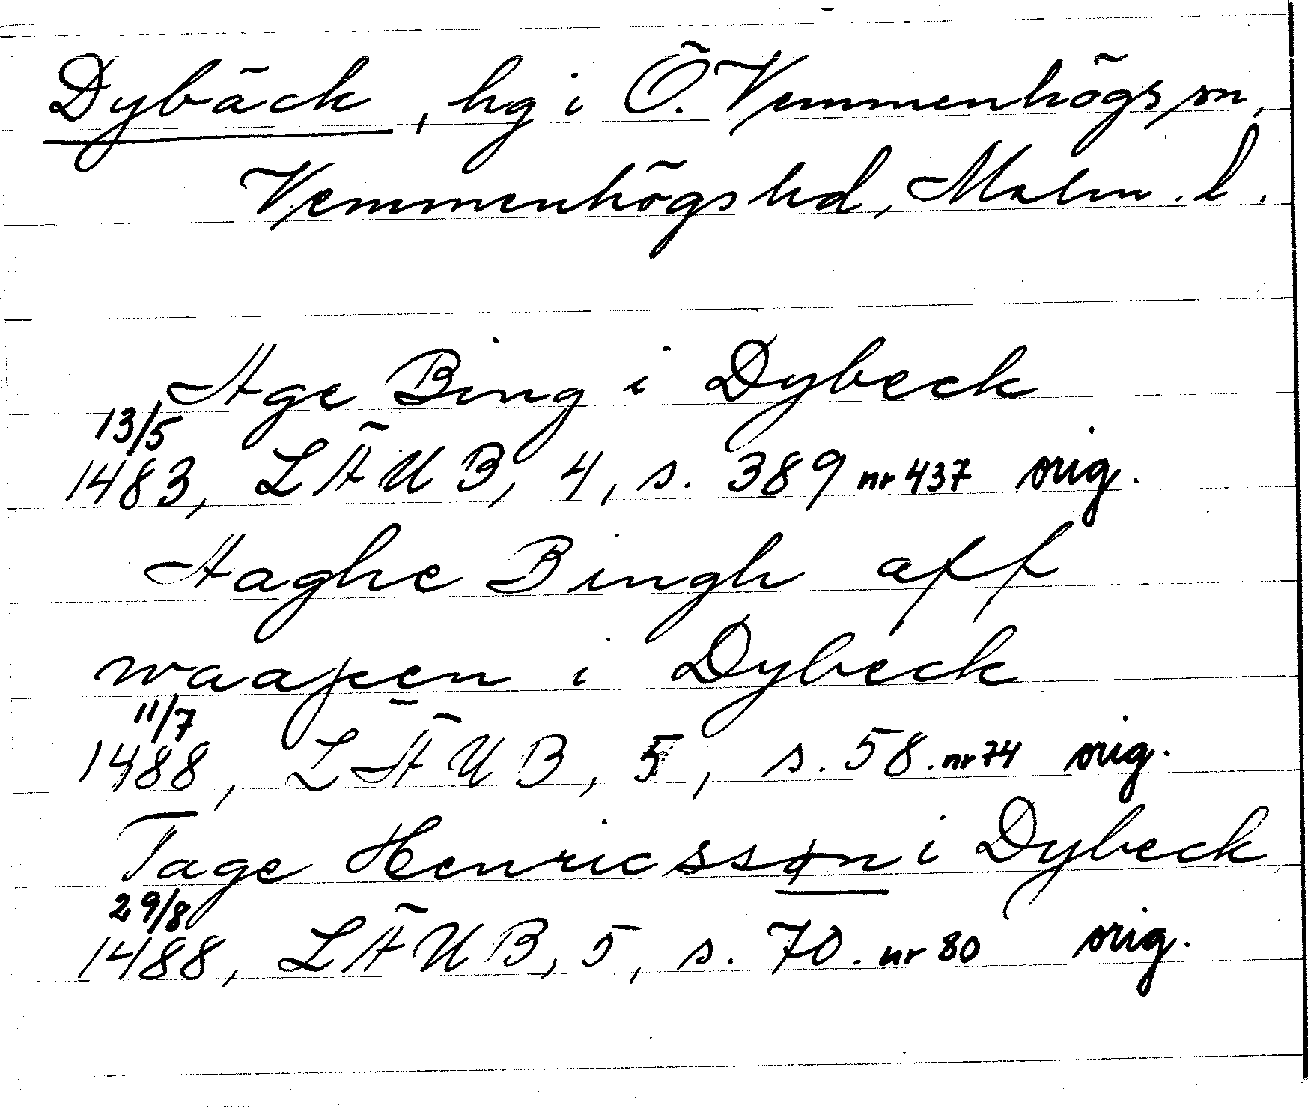 Dybäck, hg i Ö. Vemmenhögs sn,
Vemmenhögs hd, Malm. l.
Age Bing i Dybeck
13/5
1483, LÄUB, 4, s. 389 nr 437 orig.
Aaghe Bingh aff
waapen i Dybeck
11/7
1488, LÄUB, 5, s. 58. nr 74 orig.
Tage Henricssøn i Dybeck
29/8
1488, LÄUB, 5, s. 70. nr 80 orig.